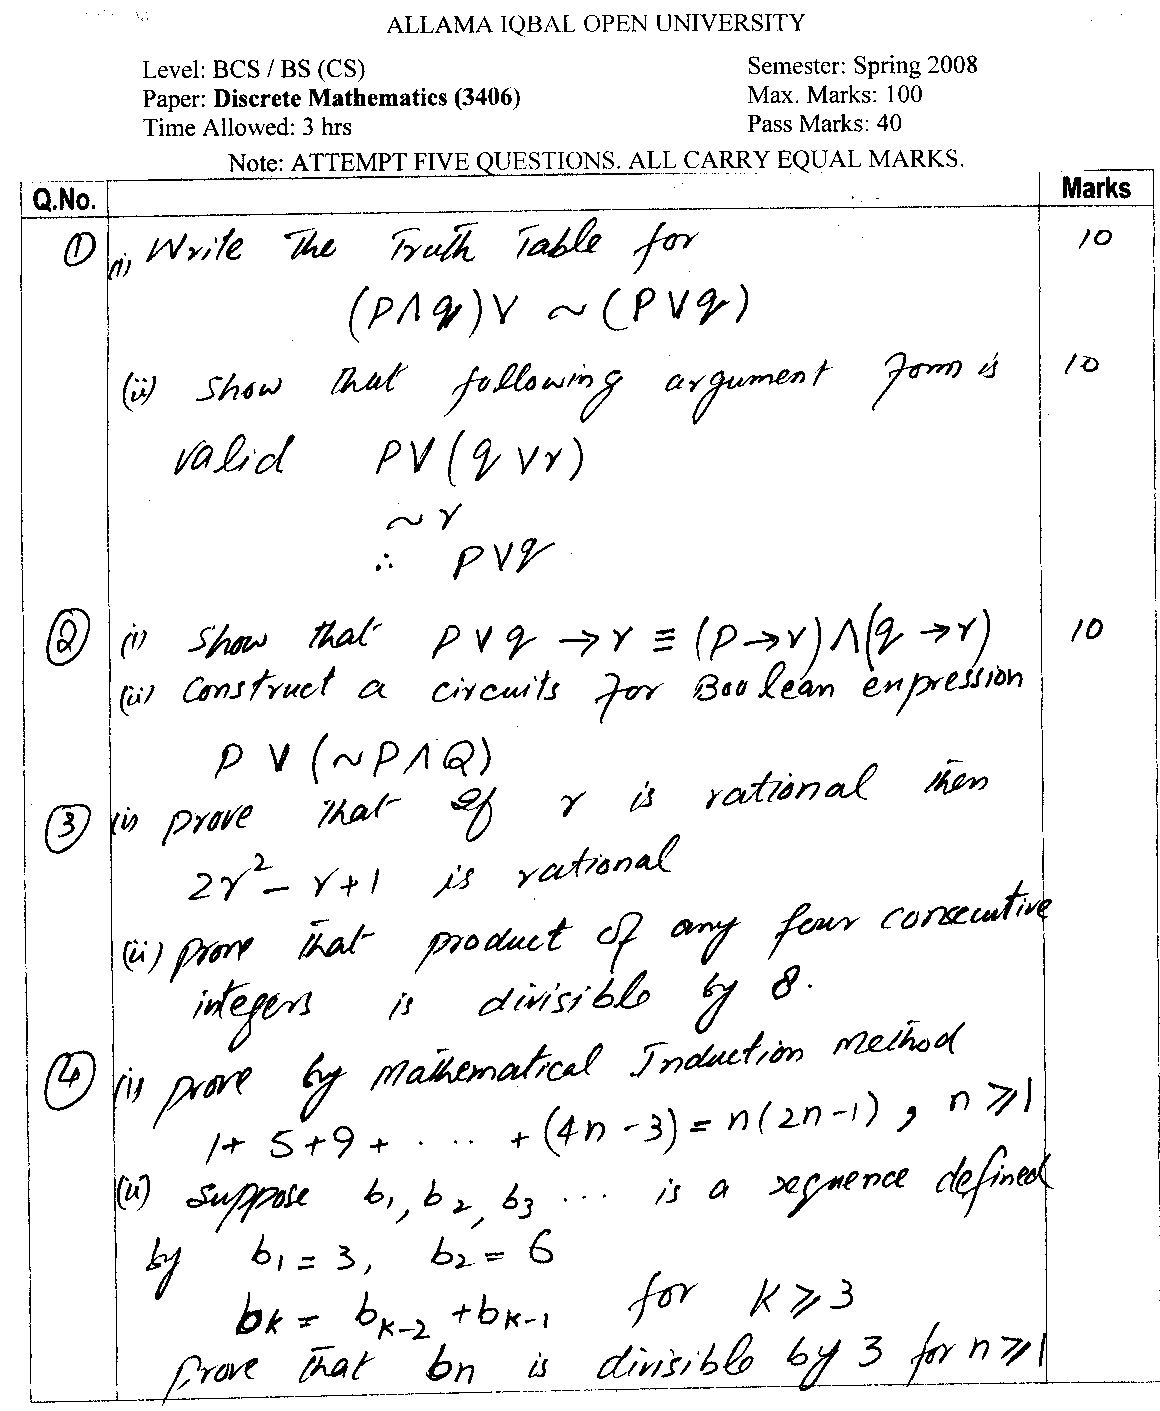 ALLAMA IQBAL OPEN UNIVERSITY
Level: BCS / BS (CS) Semester: Spring 2008
Paper: Discrete Mathematics (3406) Max. Marks: 100
Time Allowed: 3 hrs Pass Marks: 40
Note: ATTEMPT FIVE QUESTIONS. ALL CARRY EQUAL MARKS.
Q.No. Marks
① (i) Write The Truth Table for 10
(P∧q)∨ ~(P∨q)
(ii) Show that following argument form is 10
valid P∨(q∨r)
~r
∴ P∨q
② (i) Show that P∨q → r ≡ (P→r)∧(q→r) 10
(ii) Construct a circuits for Boolean enpression
P ∨ (~P∧Q)
③ (i) prove that if r is rational then
2r²-r+1 is rational
(ii) prove that product of any four consecutive
integers is divisible by 8.
④ (i) prove by Mathematical Induction method
1+5+9+ . . . . +(4n-3)=n(2n-1), n⩾1
(ii) suppose b₁, b₂, b₃ ... is a sequence defined
by b₁=3, b₂=6
bₖ = bₖ₋₂ +bₖ₋₁ for K⩾3
Prove that bn is divisible by 3 for n⩾1